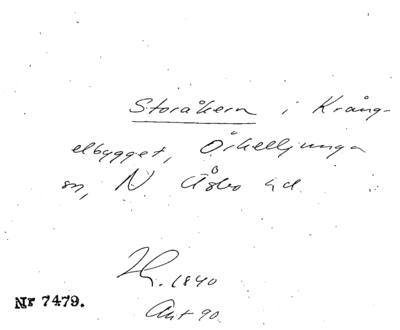 Storåkern i Kräng-
elbygget, Örkelljunga
sn, N. Åsbo hd.
1840
Nr 7479.
Ant 90.